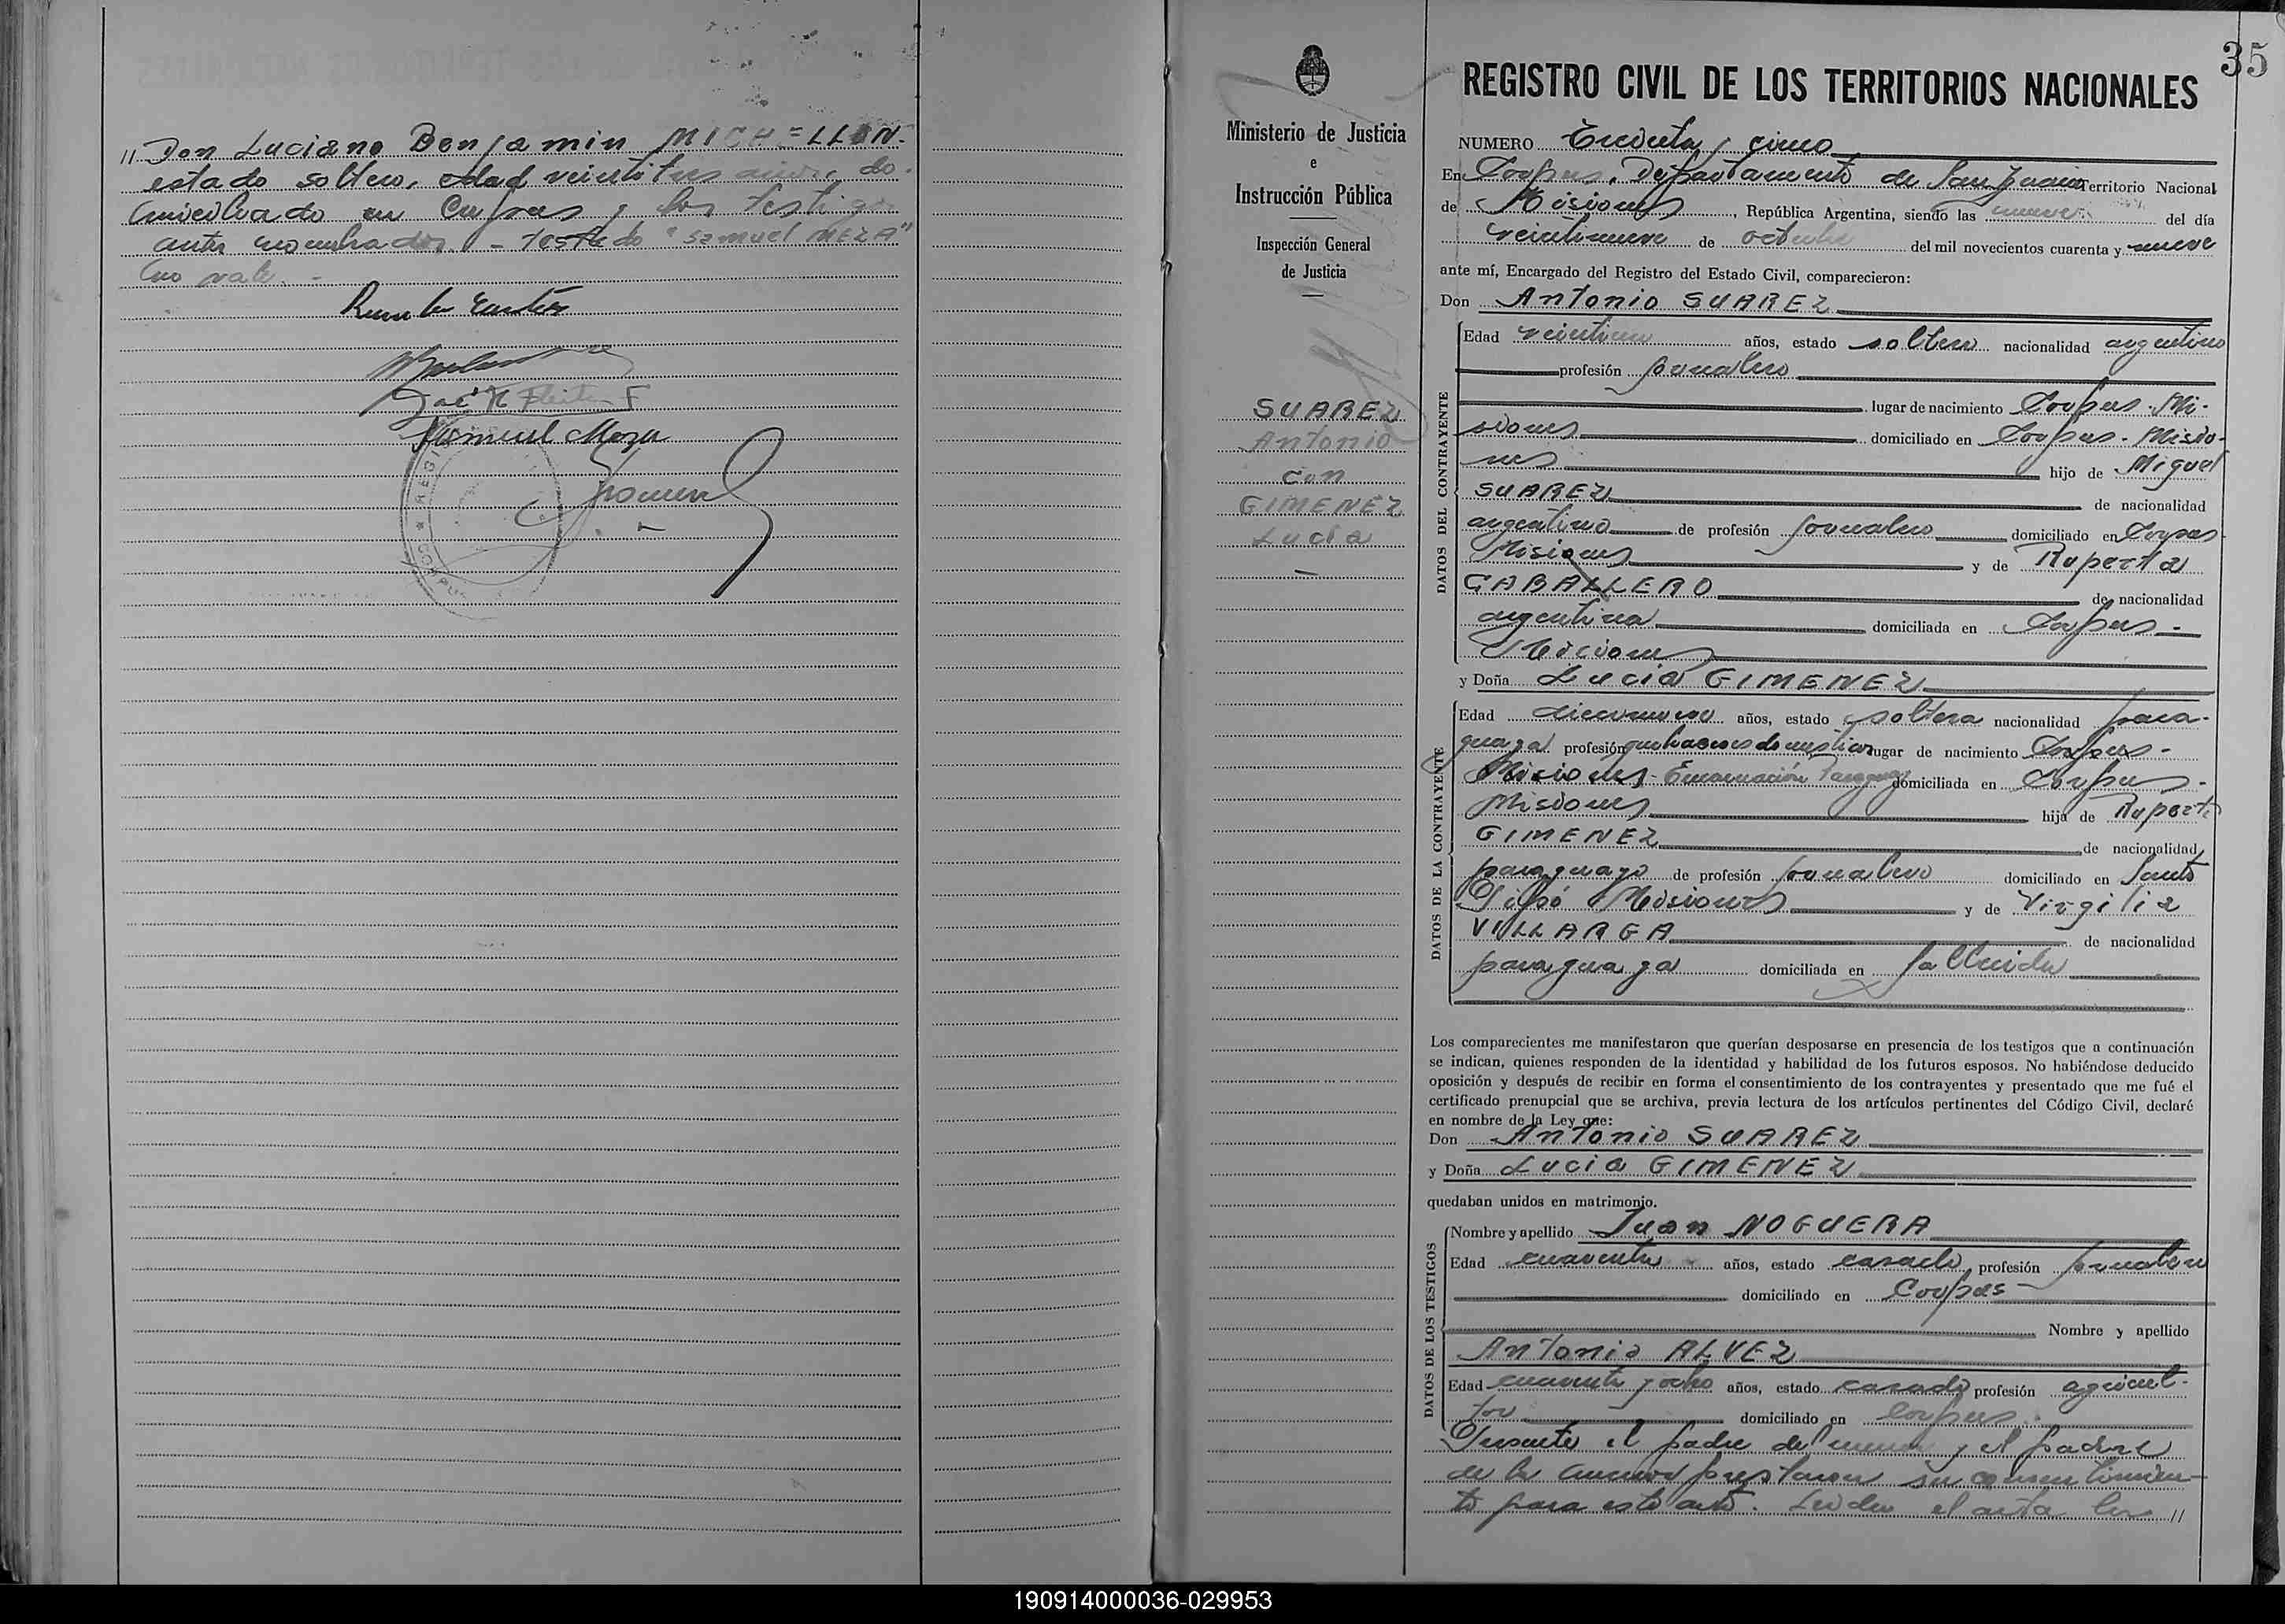 // Don Luciano Benjamin MICHELLON.
estado soltero, edad veintitres años, do-
miciliado en Corpus y los testigos
antes nombrados. - Testado "Samuel MEZA"
no vale. -
Samuel Meza
35
Ministerio de Justicia
e
Instrucción Pública
Inspección General
de Justicia
SUAREZ
Antonio
con
GIMENEZ
Lucia
REGISTRO CIVIL DE LOS TERRITORIOS NACIONALES
NUMERO Treinta y cinco
En Corpus, Departamento de San Ignacio Territorio Nacional
de Misiones, República Argentina, siendo las nueve del día
veintinueve de octubre del mil novecientos cuarenta y nueve
ante mí, Encargado del Registro del Estado Civil, comparecieron:
Don Antonio SUAREZ
DATOS DEL CONTRAYENTE
Edad años, estado soltero nacionalidad argentino
profesión jornalero
lugar de nacimiento Corpus - Mi-
siones domiciliado en Corpus - Misio-
nes hijo de Miguel
SUAREZ de nacionalidad
argentino de profesión jornalero domiciliado en Corpus
Misiones y de Ruperta
CABALLERO de nacionalidad
argentina domiciliada en Corpus -
Misiones
y Doña Lucia GIMENEZ
DATOS DE LA CONTRAYENTE
Edad diecinueve años, estado soltera nacionalidad para-
guaya profesión quehaceres domesticos lugar de nacimiento Corpus -
Misiones - Encarnación Paraguay domiciliada en Corpus -
Misiones hija de Ruperto
GIMENEZ de nacionalidad
paraguayo de profesión jornalero domiciliado en Santo
Pipó Misiones y de Virgilia
VILLARGA de nacionalidad
paraguaya domiciliada en fallecida
Los comparecientes me manifestaron que querían desposarse en presencia de los testigos que a continuación
se indican, quienes responden de la identidad y habilidad de los futuros esposos. No habiéndose deducido
oposición y después de recibir en forma el consentimiento de los contrayentes y presentado que me fué el
certificado prenupcial que se archiva, previa lectura de los artículos pertinentes del Código Civil, declaré
en nombre de la Ley que:
Don Antonio SUAREZ
y Doña Lucia GIMENEZ
quedaban unidos en matrimonio.
DATOS DE LOS TESTIGOS
Nombre y apellido Juan NOGUERA
Edad cuarenta años, estado casado profesión jornalero
domiciliado en Corpus
Nombre y apellido
Antonio ALVEZ
Edad cuarenta y ocho años, estado casado profesión agricul-
tor domiciliado en Corpus
Presente el padre del menor y el padre
de la menor prestaron su consentimien-
to para este acto. Leida el acta la //
190914000036-029953